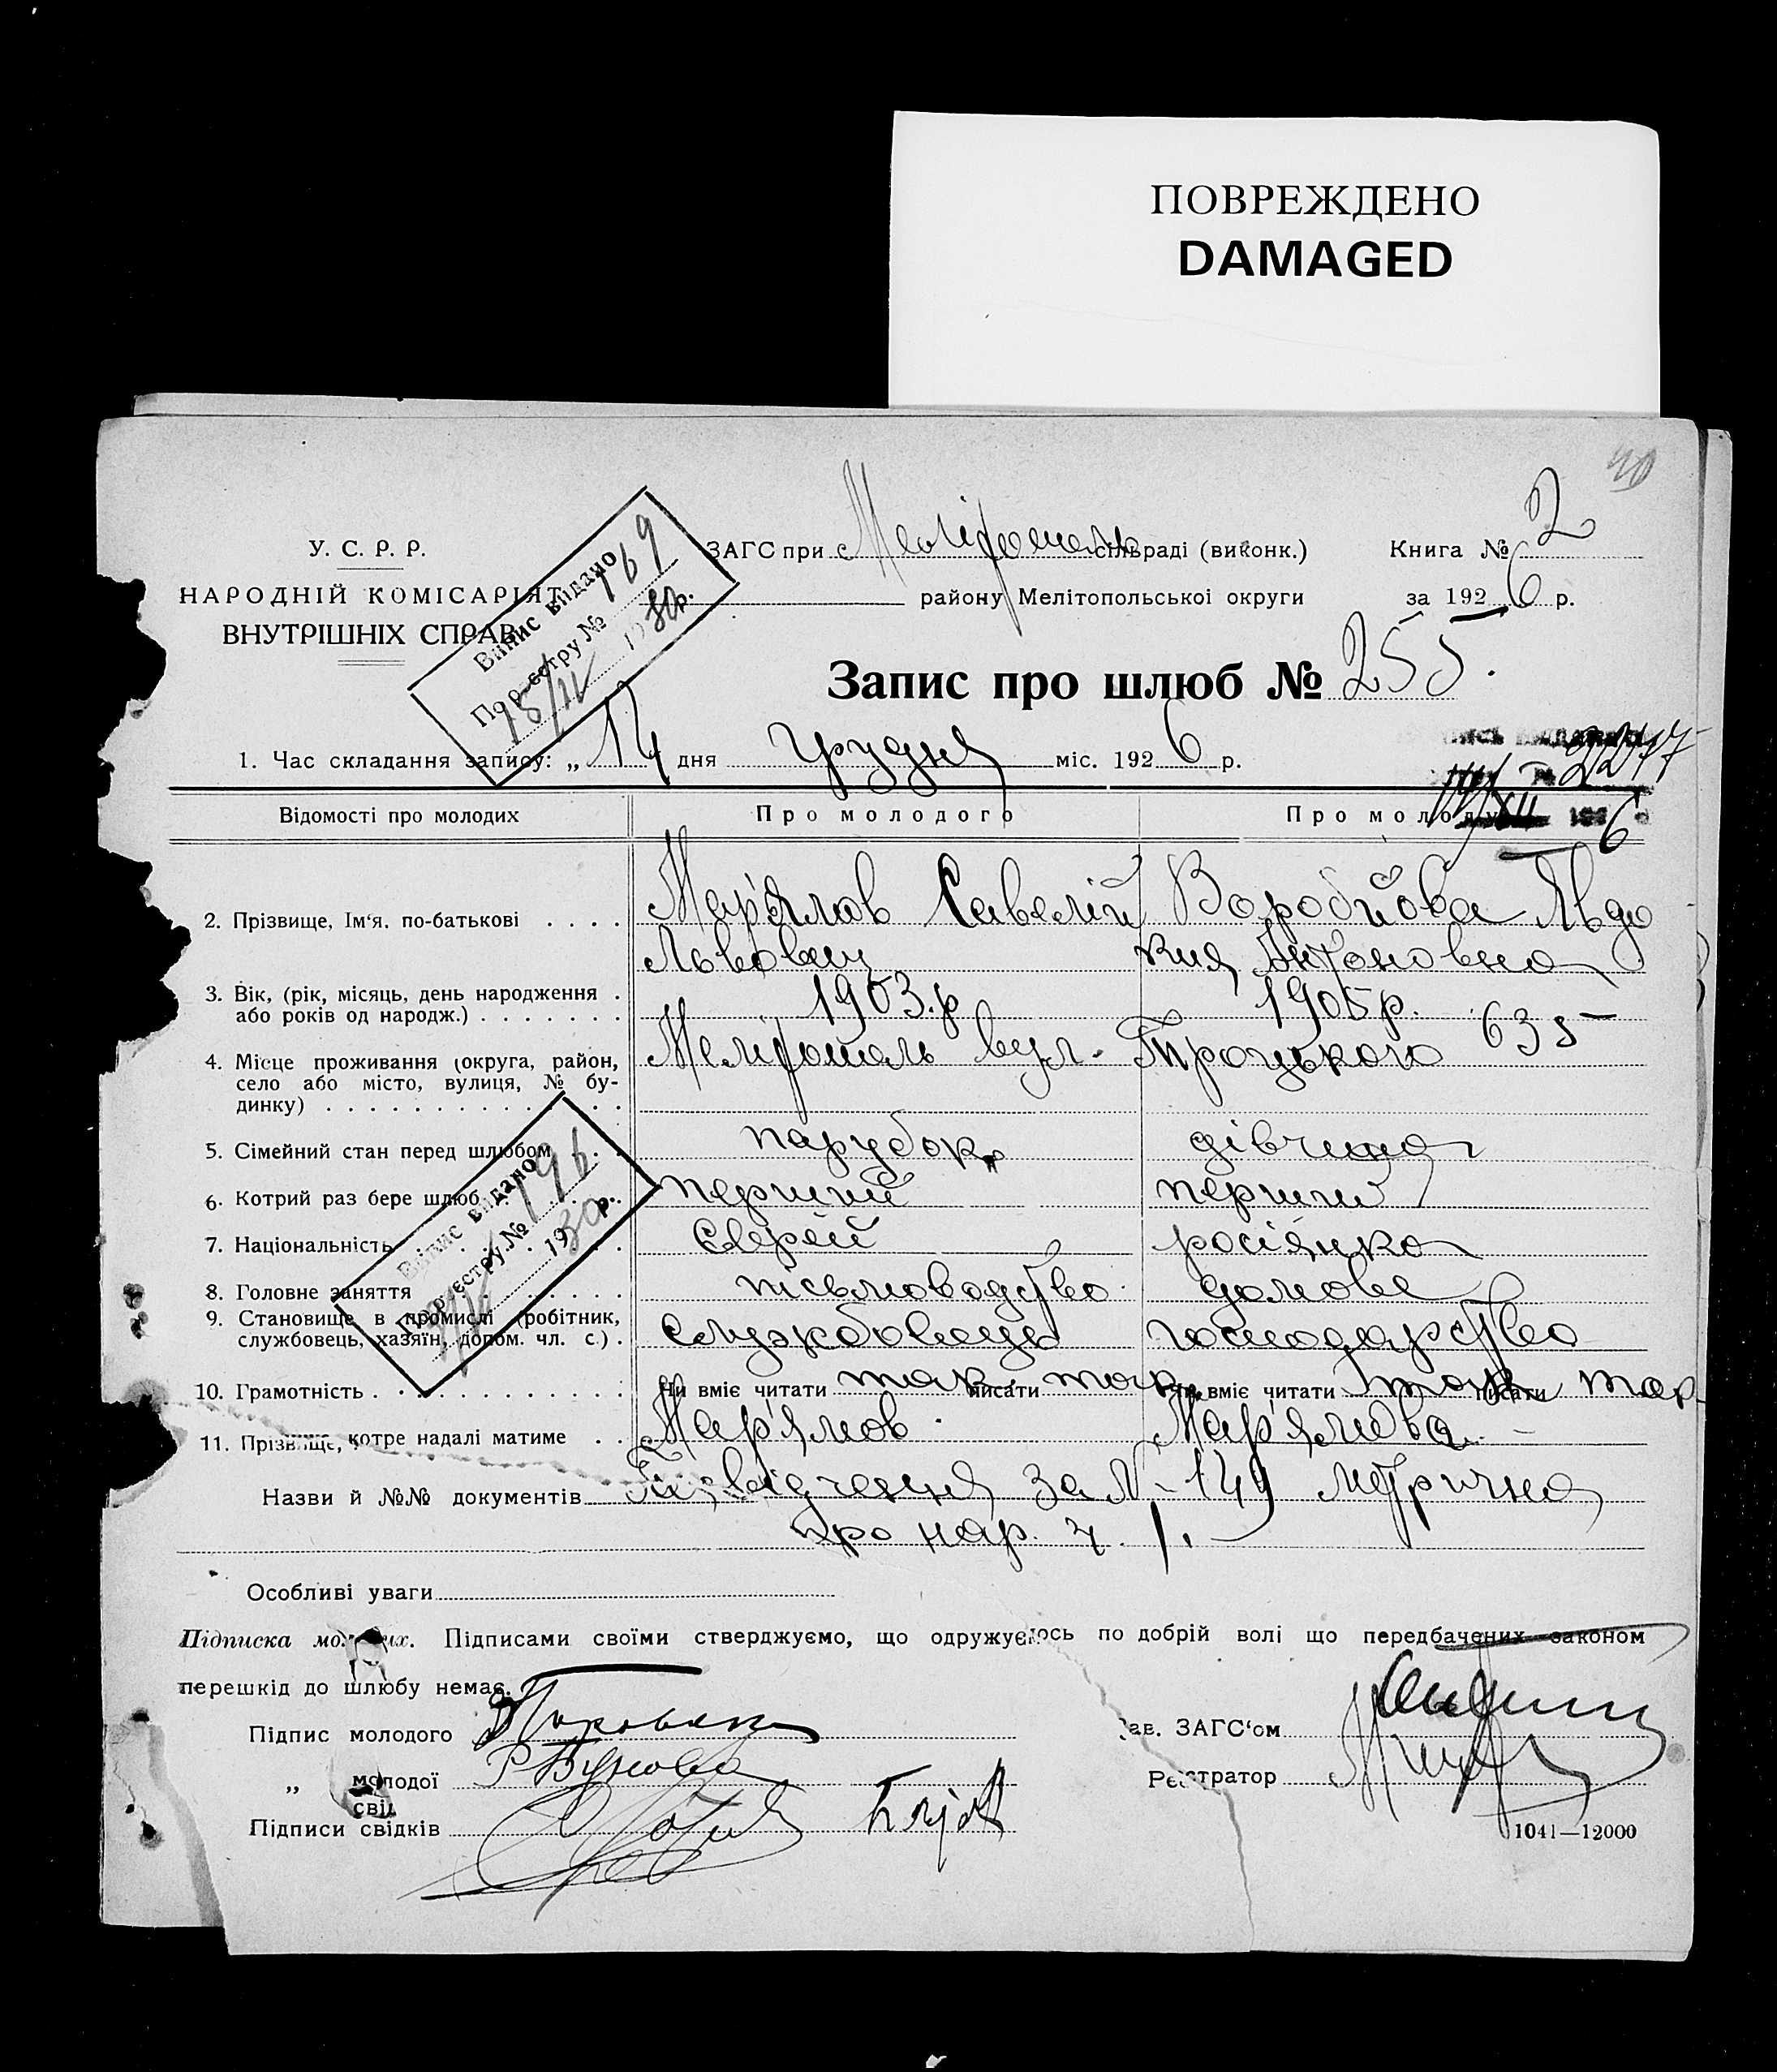 ПОВРЕЖДЕНО
DAMAGED
40
У. С. Р. Р.
НАРОДНІЙ КОМІСАРІЯТ
ВНУТРІШНІХ СПРАВ
ЗАГС при Мелітополь сільраді (виконк.)
району Мелітопольської округи
Книга № 2
за 1926 р.
Випис видано
По реєстру № 169
18/IV 1930 р.
Запис про шлюб № 255.
1. Час складання запису: „ 14 дня грудня міс. 1926 р.
2277
XII 6
Відомості про молодих Про молодого Про молоду
2. Прізвище, Ім'я. по-батькові . . . . Мар'ямов Савелій Воробйова Явдо
Львович кия Антоновна
3. Вік, (рік, місяць, день народження . 1903.р 1905р.
або років од народж.) . . . . . . .
4. Місце проживання (округа, район, Мелітополь вул. Троцького 635
село або місто, вулиця, № бу-
динку) . . . . . . . . . . . . . .
5. Сімейний стан перед шлюбом . . парубок дівчина
6. Котрий раз бере шлюб перший перший
7. Національність Єврей росіянка
8. Головне заняття письмоводство домове
9. Становище в промислі (робітник,
службовець, хазяїн, допом. чл. с.) . Службовець господарство
Випис видано
По реєстру № 196
1930 р.
10. Грамотність . . . . . . . . . . . . Чи вміє читати так писати так Чи вміє читати так писати так
11. Прізвище, котре надалі матиме . . Мар'ямов Мар'ямова
Назви й №№ документів Посвідчення за № 149 метрична
про нар. ч. 1.
Особливі уваги
Підписка молодих. Підписами своїми стверджуємо, що одружуємось по добрій волі що передбачених законом
перешкід до шлюбу немає.
Підпис молодого
„ молодої
свід
Підписи свідків
Зав. ЗАГС'ом
Реєстратор
1041—12000